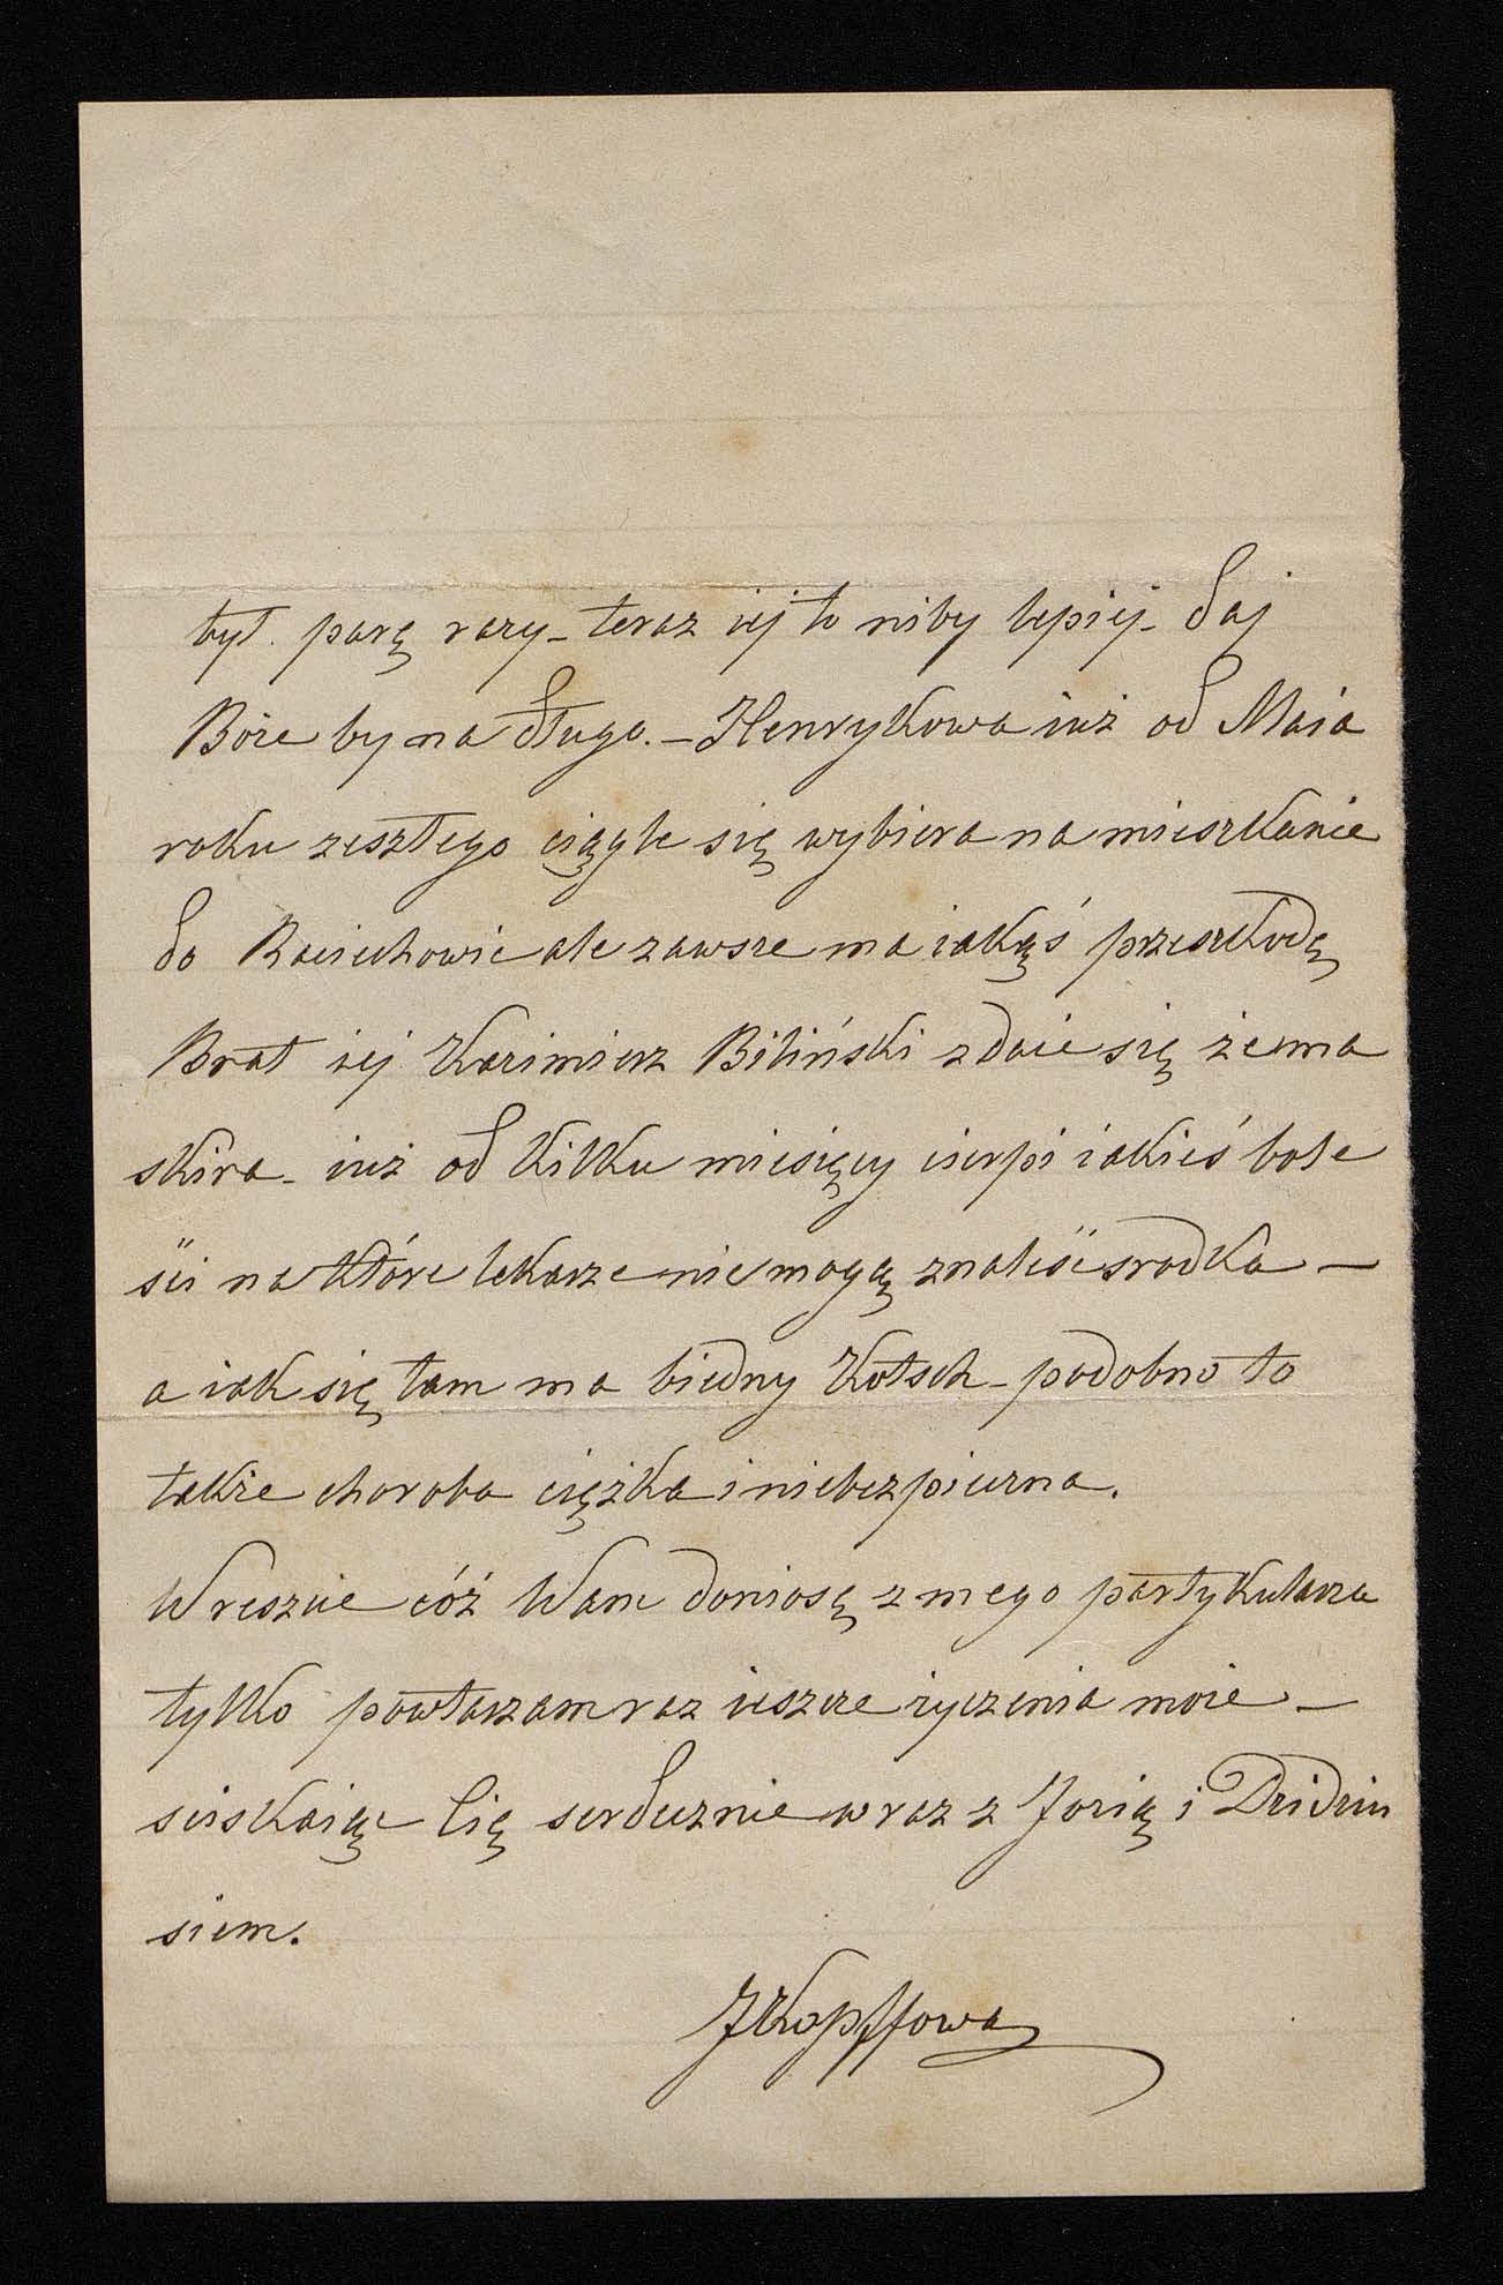 był. parę razy – teraz iej to niby lepiej – daj
Boże by na długo. – Henrykowa iuż od Maia
roku zeszłego ciągle się wybiera na mieszkanie
do Raciechowic ale zawsze ma iakąś przeszkodę
Brat iej Kazimierz Biliński zdaie się że ma
skira – iuż od kilku miesięcy cierpi iakieś bole
ści na które lekarze nie mogą znaleść srodka –
a iak się tam ma biedny Kotsch – podobno to
także choroba ciężka i niebezpieczna.
Wreszcie cóż Wam doniosę z mego partykularza
tylko powtarzam raz ieszcze życzenia moie –
sciskaiąc Cię serdecznie wraz z Jozią i Dzidziu
siem.
JKopffowa